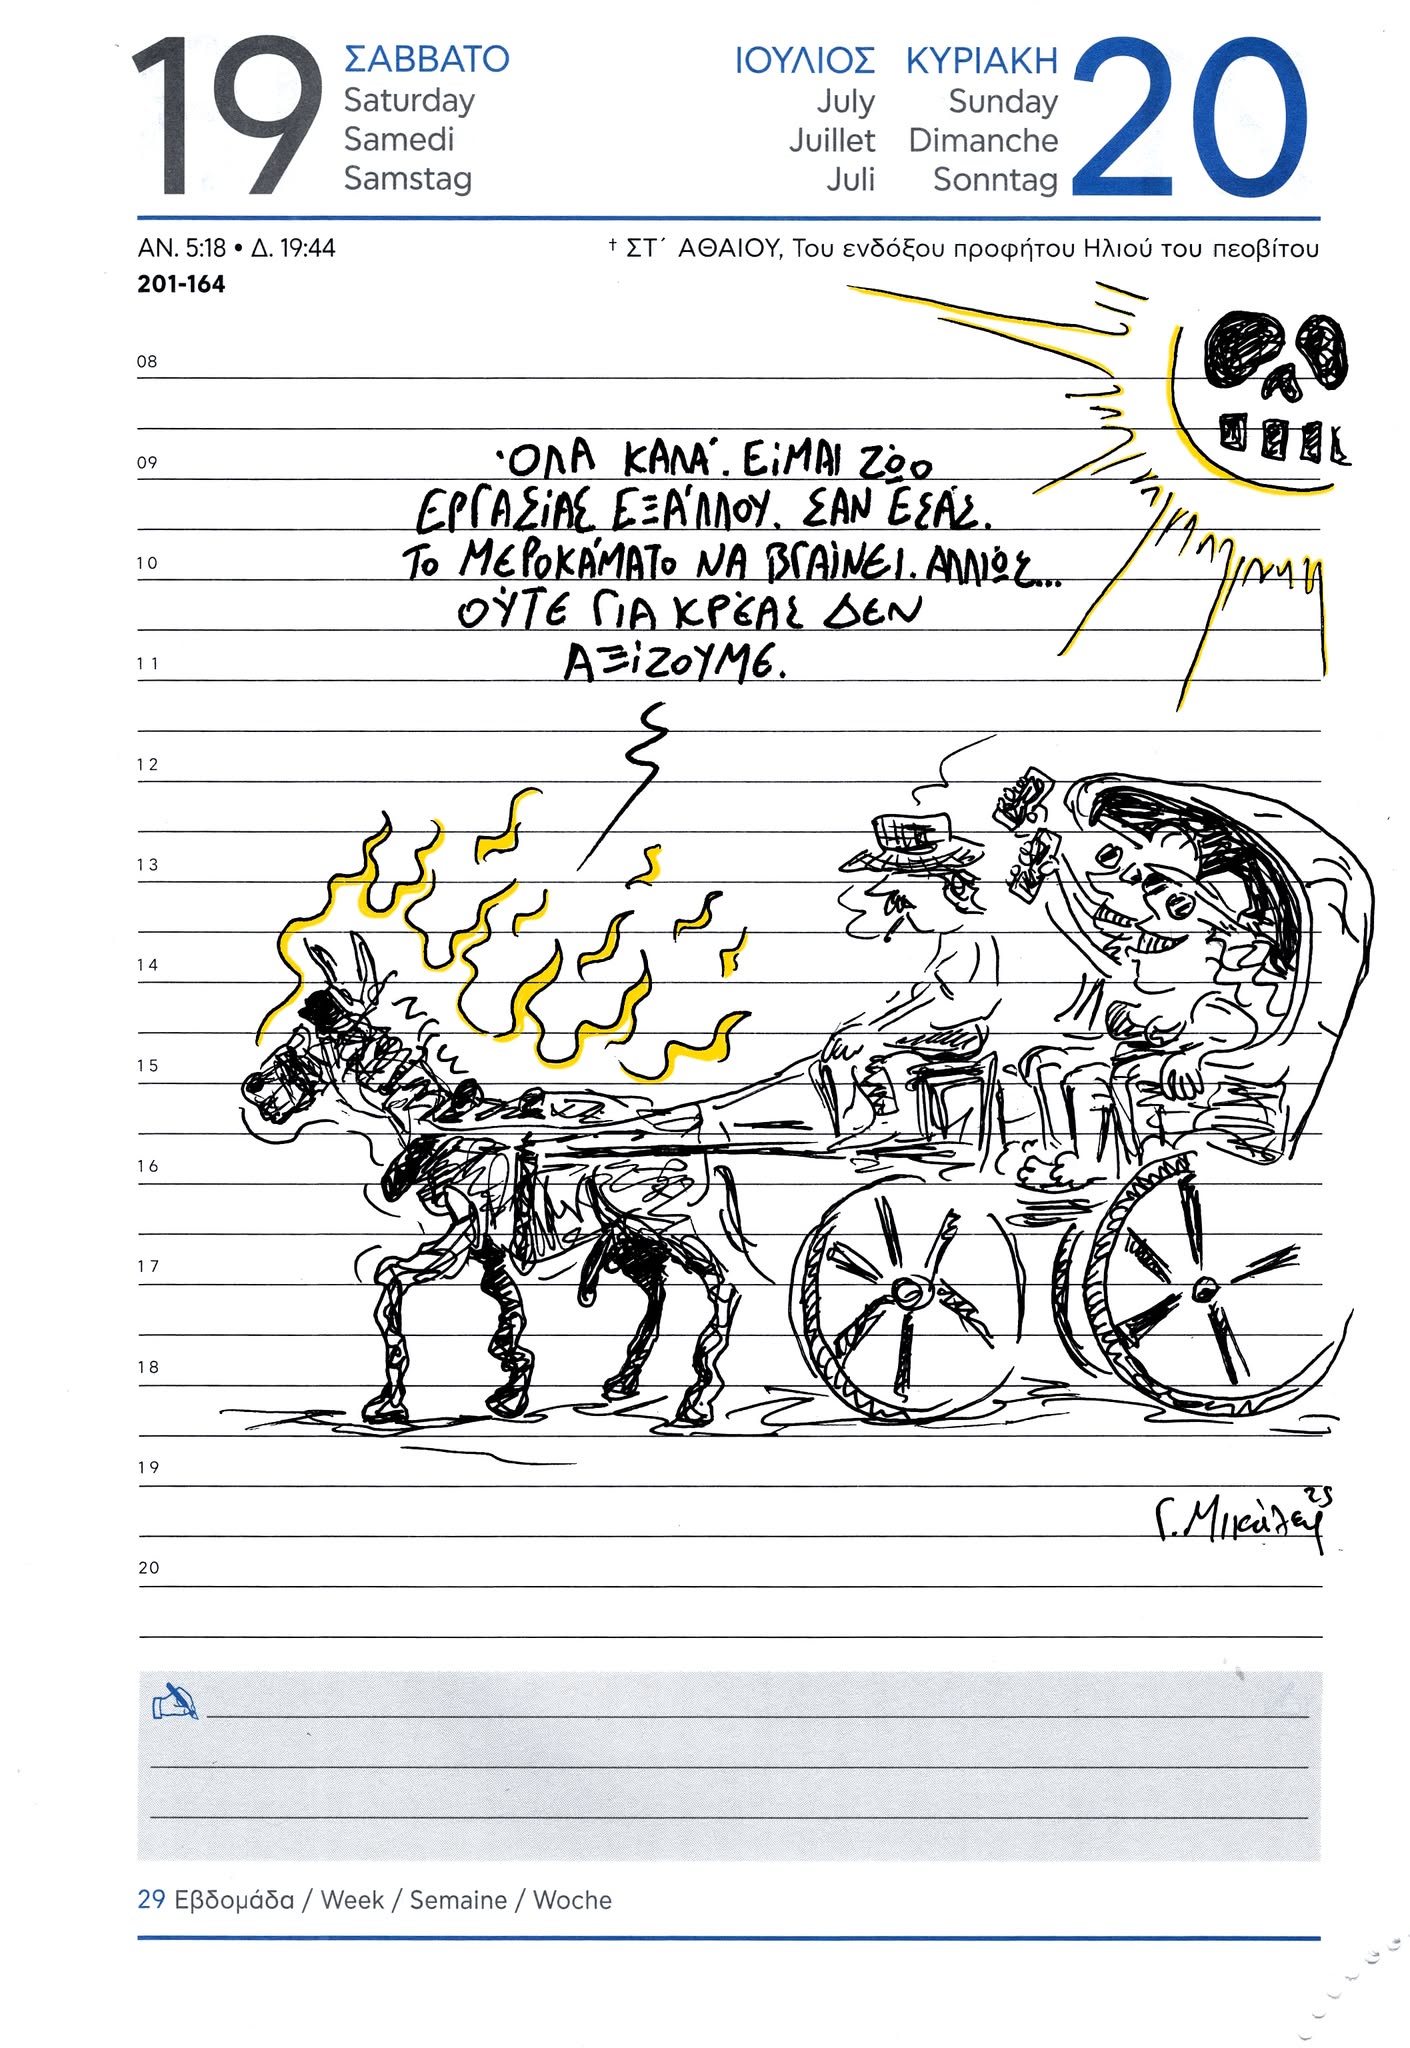 19 ΣΑΒΒΑΤΟ ΙΟΥΛΙΟΣ ΚΥΡΙΑΚΗ 20
Saturday July Sunday
Samedi Juillet Dimanche
Samstag Juli Sonntag
ΑΝ. 5:18 • Δ. 19:44 † ΣΤ΄ ΑΘΑΙΟΥ, Του ενδόξου προφήτου Ηλιού του πεοβίτου
201-164
08
09
ΌΛΑ ΚΑΛΆ. ΕΊΜΑΙ ΖΏΟ
ΕΡΓΑΣΊΑΣ ΕΞΆΛΛΟΥ. ΣΑΝ ΕΣΆΣ.
10
ΤΟ ΜΕΡΟΚΆΜΑΤΟ ΝΑ ΒΓΑΊΝΕΙ. ΑΛΛΙΏΣ...
ΟΎΤΕ ΓΙΑ ΚΡΈΑΣ ΔΕΝ
11
ΑΞΊΖΟΥΜΕ.
12
13
14
15
16
17
18
19
Γ. Μικάλεφ 25
20
29 Εβδομάδα / Week / Semaine / Woche